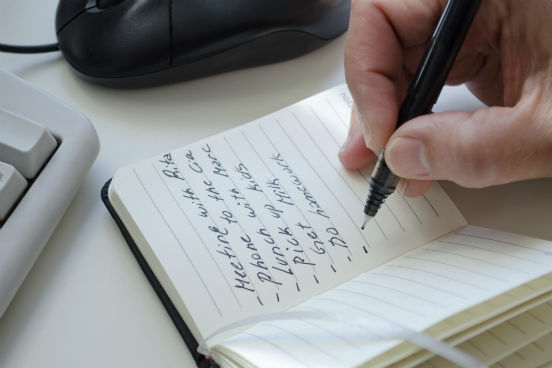 Meeting with Rita
- Phone to the
- Lunch with Marc
- Pick up kids
- Get Milk
- Do homework
-